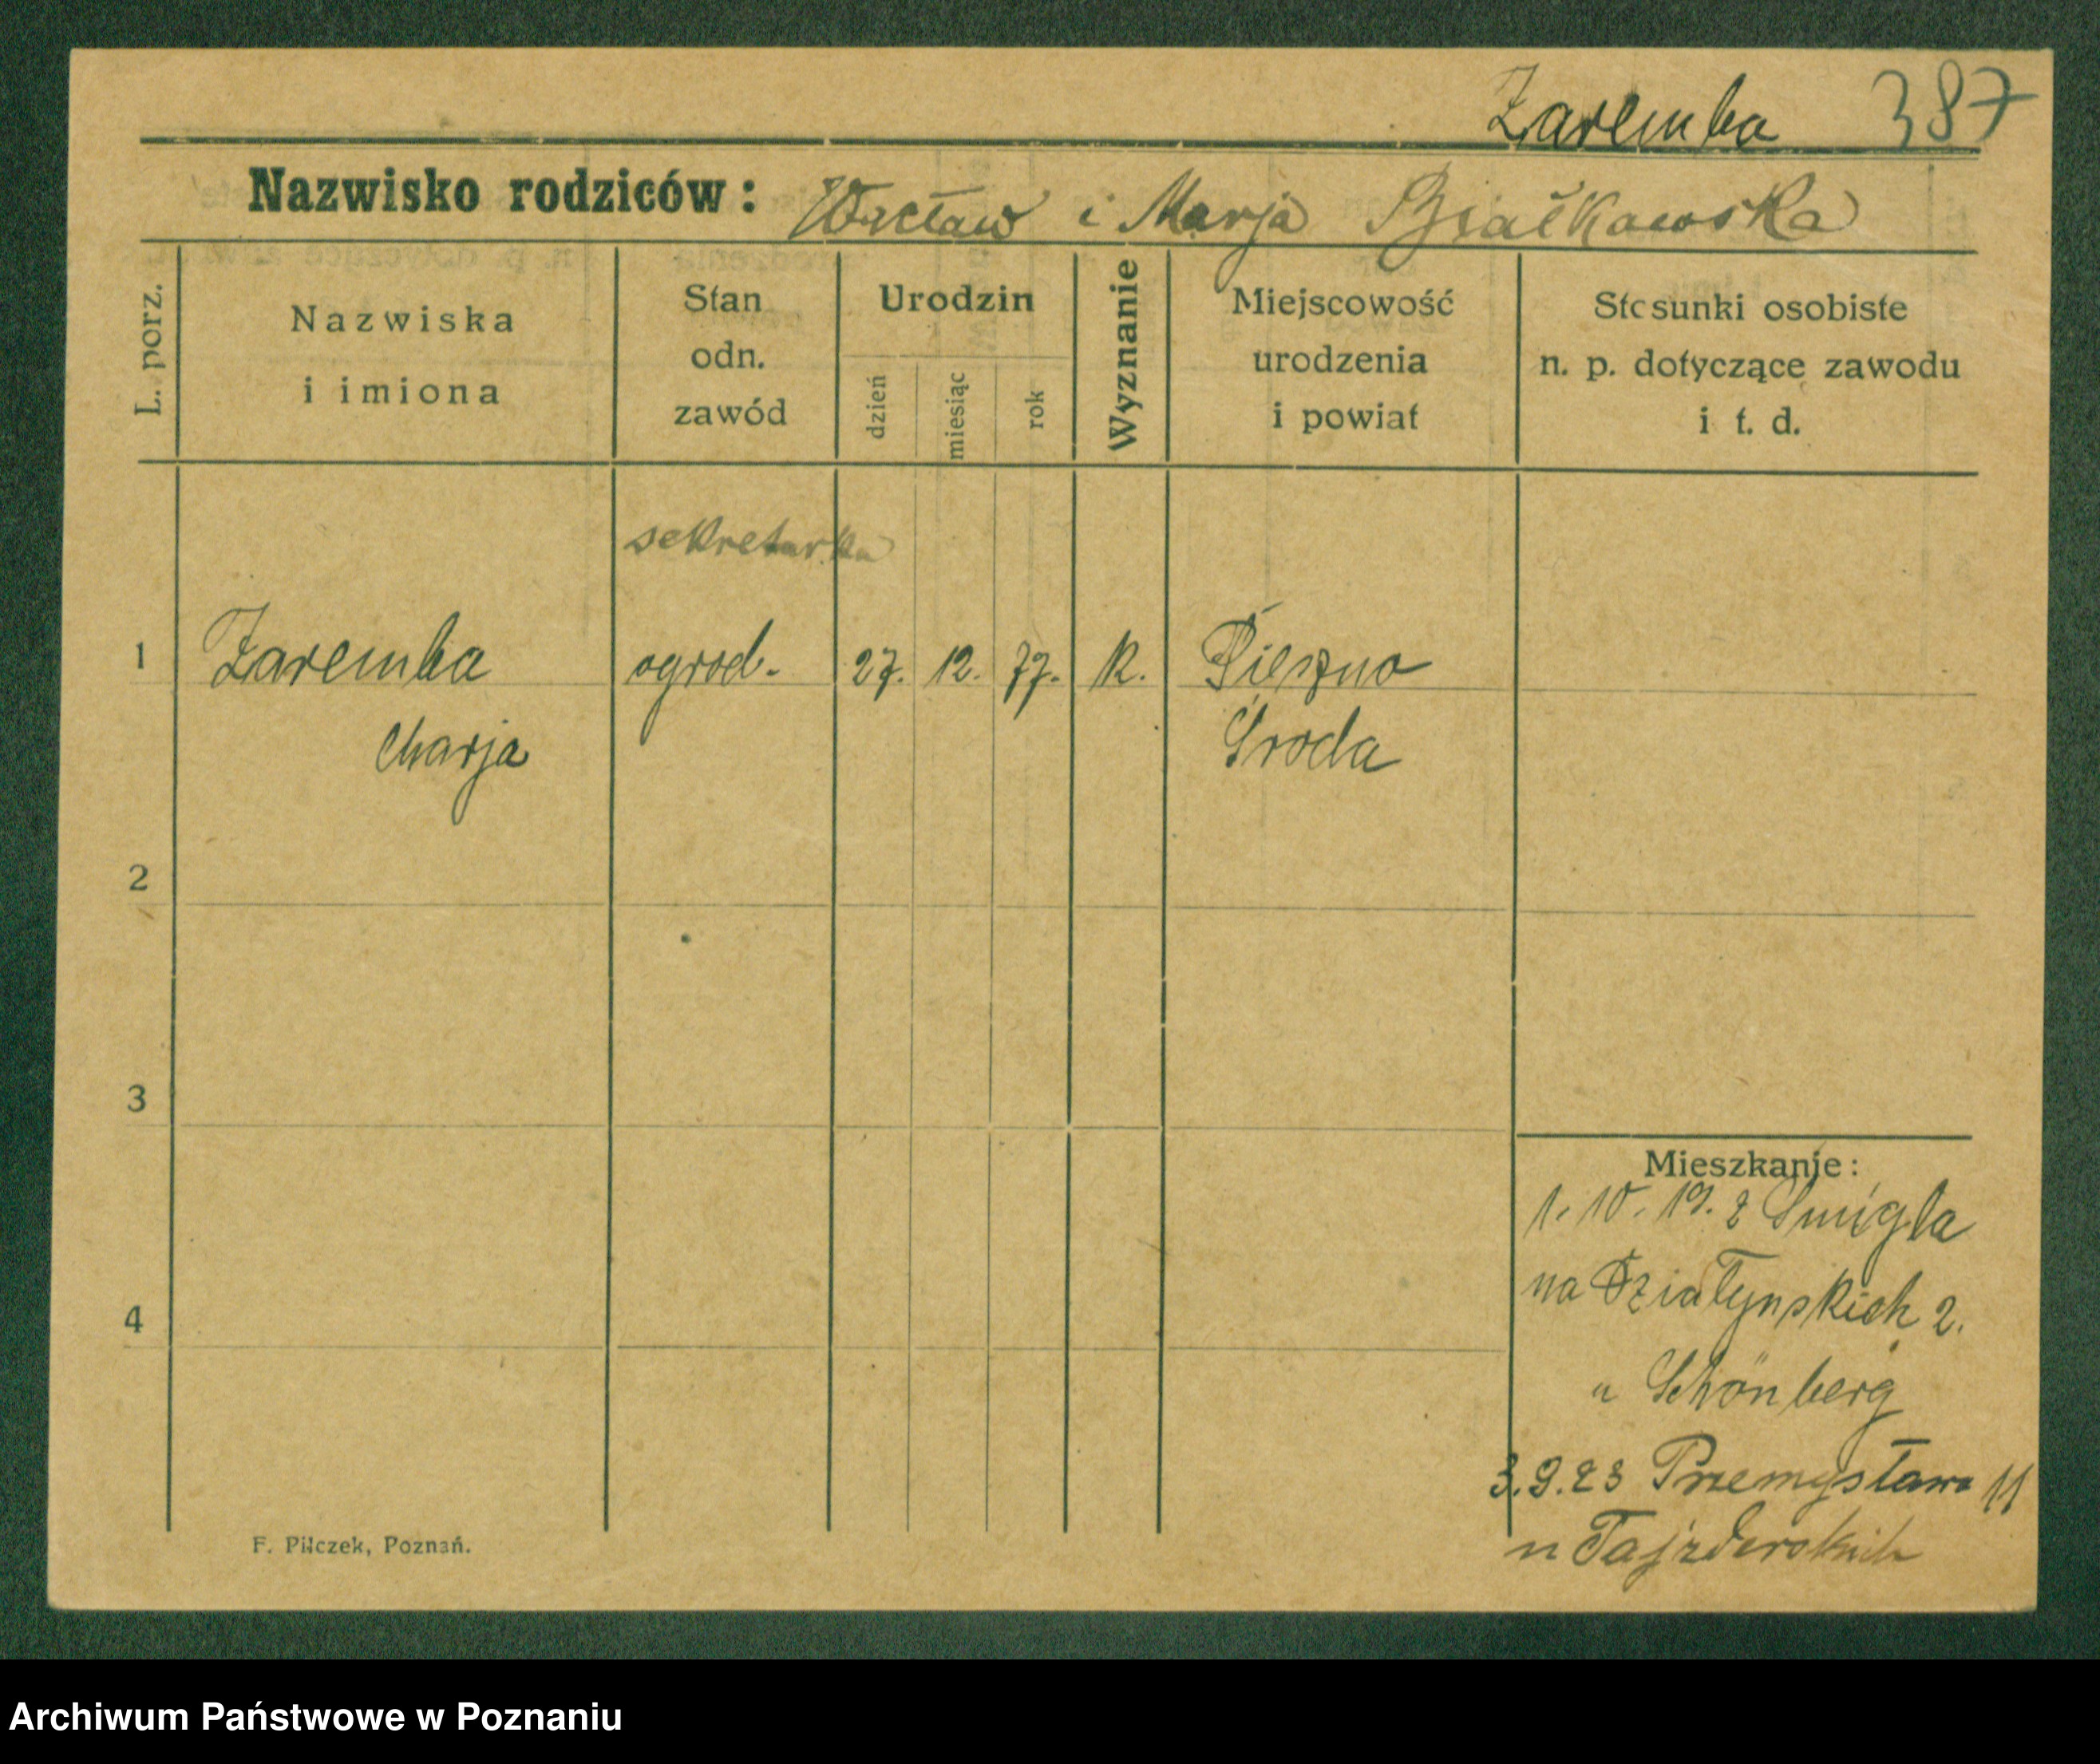 Zaremba 387
Nazwisko rodziców: Wacław i Marja Białkowska
L. porz.
Nazwiska
i imiona
Stan
odn.
zawód
Urodzin
dzień
miesiąc
rok
Wyznanie
Miejscowość
urodzenia
i powiat
Stosunki osobiste
n. p. dotyczące zawodu
i t. d.
sekretarka
1 Zaremba ogrod. 27. 12. 77. K.
Marja Środa
2
3
4
Mieszkanie:
1. 10. 19. z Śmigla
na Działyńskich 2.
u Schönberg
3.9.23 Przemysława 11
u
F. Pilczek, Poznań.
Archiwum Państwowe w Poznaniu